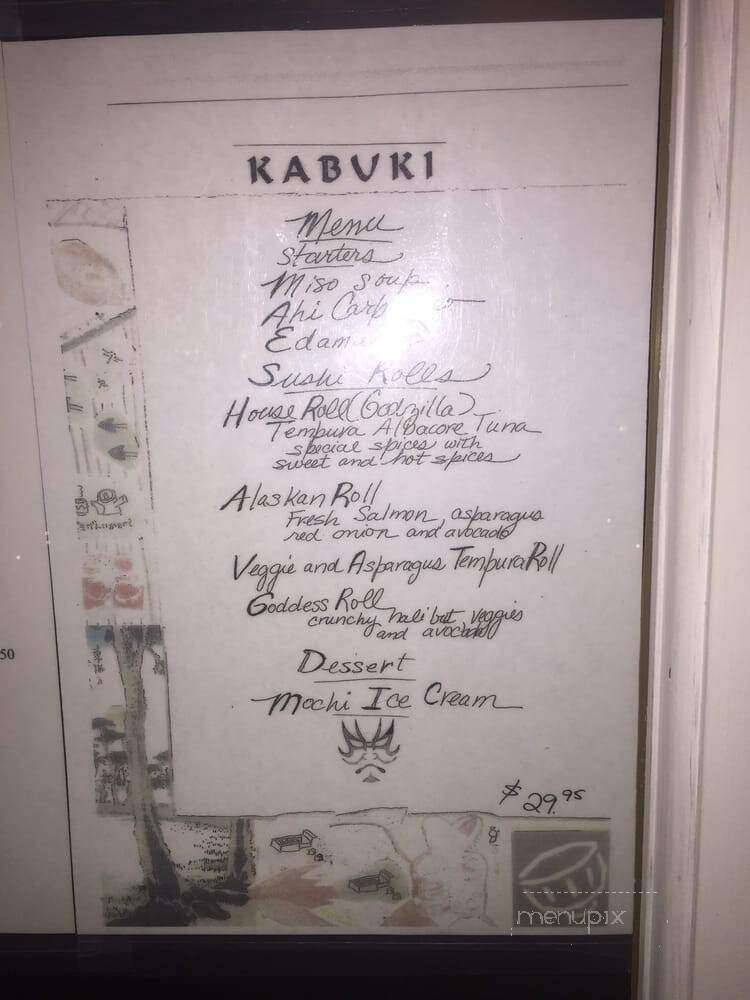 KABUKI
Menu
Starters
Miso Soup
Ahi
Sushi Rolls
House Roll (Godzilla)
Tempura Albacore Tuna
special spices with
sweet and hot spices
Alaskan Roll
Fresh Salmon, asparagus
red onion and avocado
Veggie and Asparagus Tempura Roll
Goddess Roll
crunchy halibut veggies
and avocado
Dessert
Mochi Ice Cream
$29.95
50
menupix